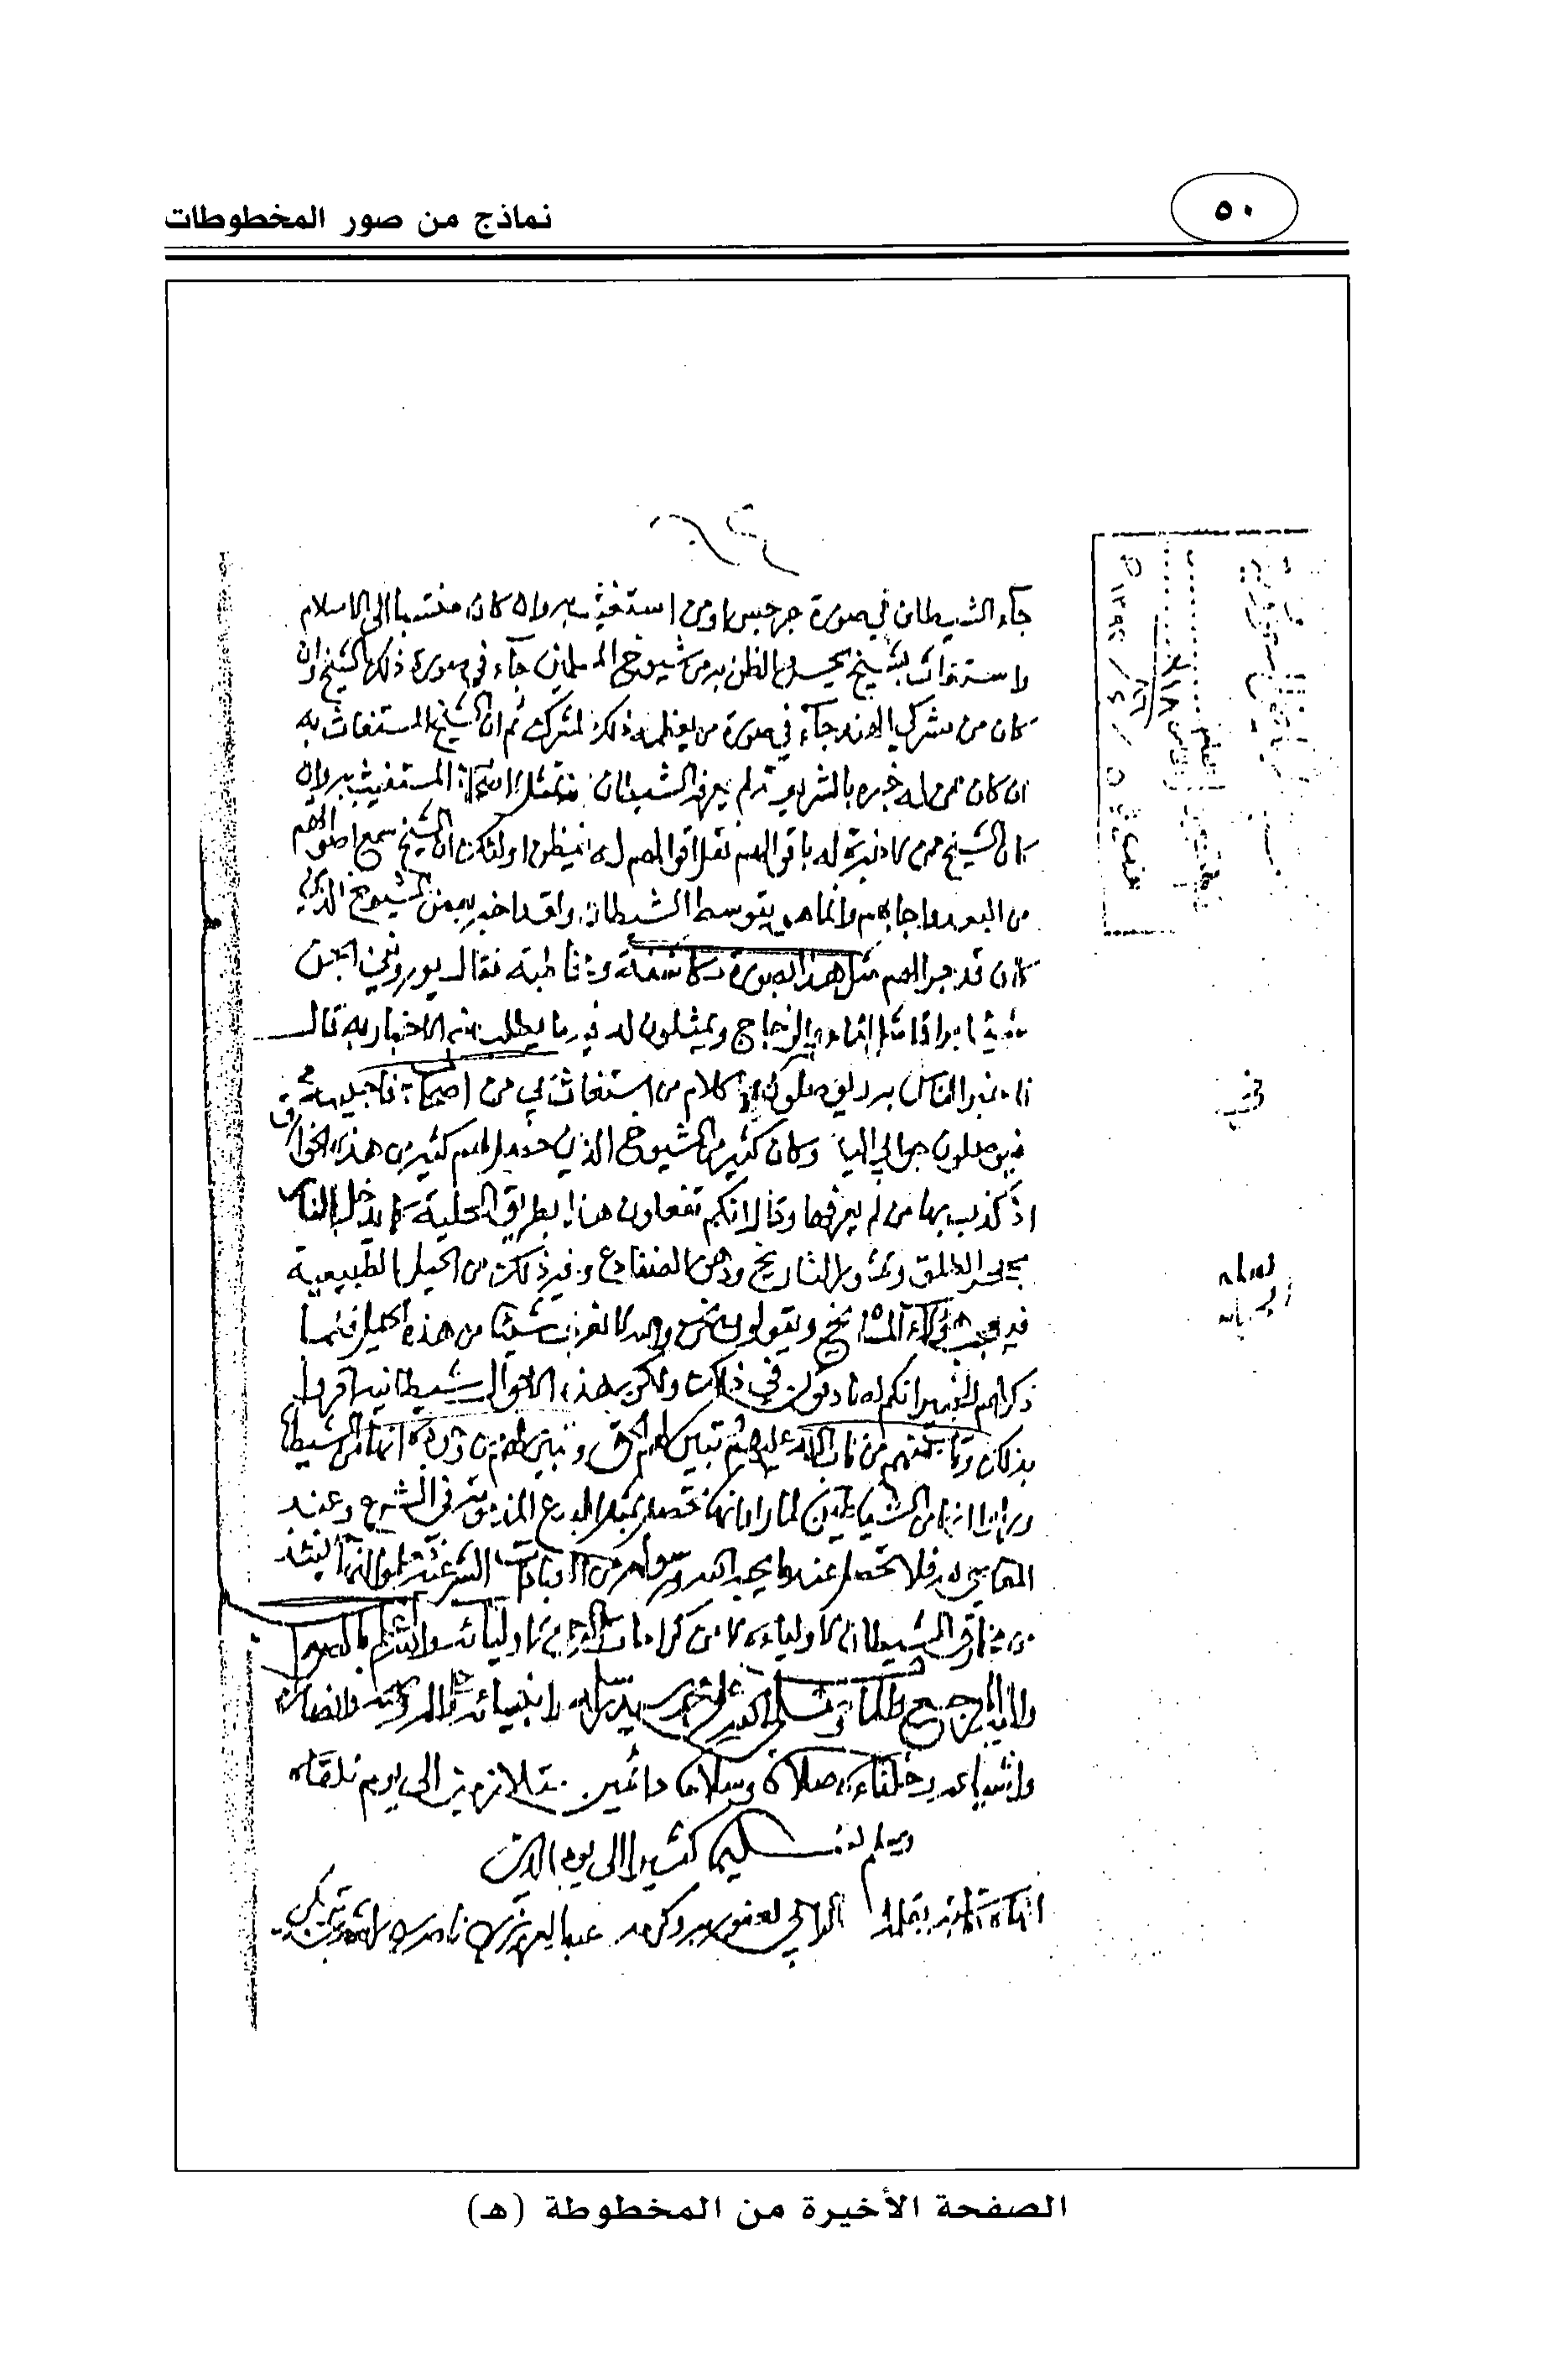 نماذج من صور المخطوطات
٥٠
جآء الشيطان في صورة جرجس او من استغيث به وان كان منتسبا الى الاسلام
واستغاث بشيخ يحسن الظن به من شيوخ المسلمين جآء في صورة ذلك الشيخ وان
كان من مشركي الهند جآء في صورة من يعظمه ذلك المشرك ثم ان الشيخ المستغاث به
ان كان ممن له خبره بالشريعة لم يعرفه الشيطان المستغيث به وان
كان الشيخ ممن لا خبرة له باقوالهم نقل اقوالهم له فيظن اولئك ان الشيخ سمع اصواتهم
من البعد واجابهم وانما هو بتوسط الشيطان ولقد اخبر بعض الشيوخ الذين
كان قد جرا لهم مثل هذه الصورة مكاشفة ومخاطبة فقال يرونني الجن
شيئا براقا مثل الماء والزجاج ويمثلون له فيه ما يطلب منه الاخبار به قال
فاخبر الناس به ويوصلون الي كلام من استغاث بي من اصحابي فاجيبه
فيوصلون جوابي اليه وكان كثير من الشيوخ الذين حصل لهم كثير من هذه الخوارق
اذ كذب بها من لم يعرفها وقال انكم تفعلون هذا بطريق الحلية كما يدخل النار
بحجر الطلق وقشور النارنج ودهن الضفادع وغير ذلك من الحيل الطبيعية
فيعجب هؤلآء المشايخ ويقولون نحن والله لا نعرف شيئا من هذه الحيل فلما
ذكر لهم الخبير انكم لصادقون في ذلك ولكن هذه الاحوال شيطانية اقروا
بذلك وتاب منهم من تاب الله عليه لما تبين لهم الحق وتبين لهم من وجوه انها من الشيطان
وراوا انها من الشياطين لما راوا انها تحصل بمثل البدع المذمومة في الشرع وعند
المعاصي لله فلا تحصل عند ما يحبه الله ورسوله من العبادات الشرعية فعلموا انها حينئذ
من مخارق الشيطان لاوليائه لا من كرامات الرحمن لاوليائه والله اعلم بالصواب
واليه المرجع والمآب وصلى الله على محمد سيد رسله وانبيائه وآله وصحبه وانصاره
واشياعه وخلفاءه صلاة وسلاما دائمين متلازمين الى يوم نلقاه
وسلم تسليما كثيرا الى يوم الدين
الراجي لعفو ربه وكرمه عبدالعزيز بن ناصر بن راشد بن تريكي
الصفحة الأخيرة من المخطوطة (هـ)